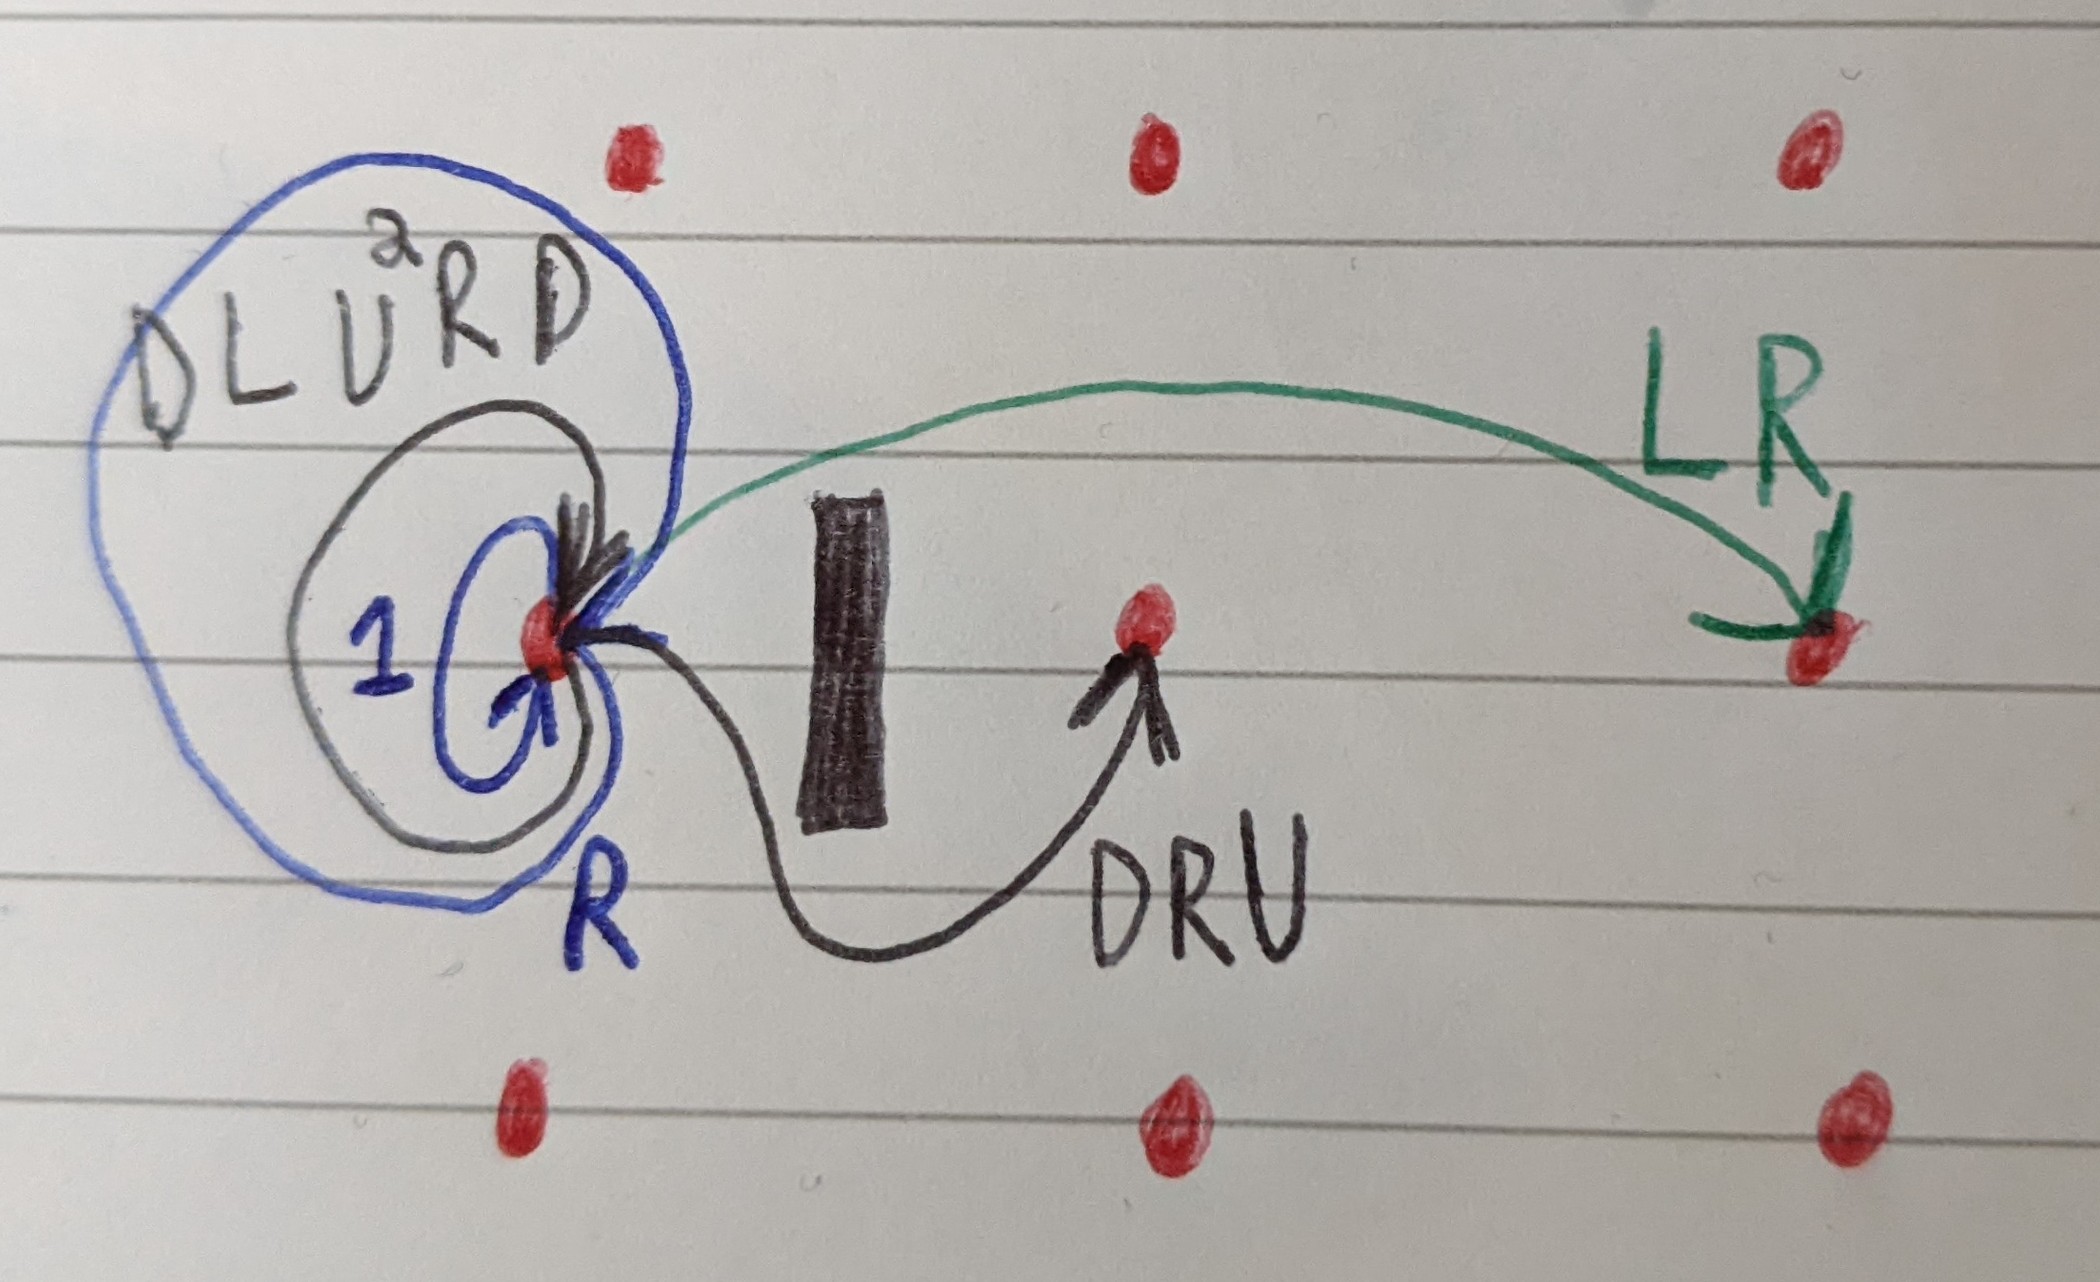 DLU²RD
LR
1
R
DRU